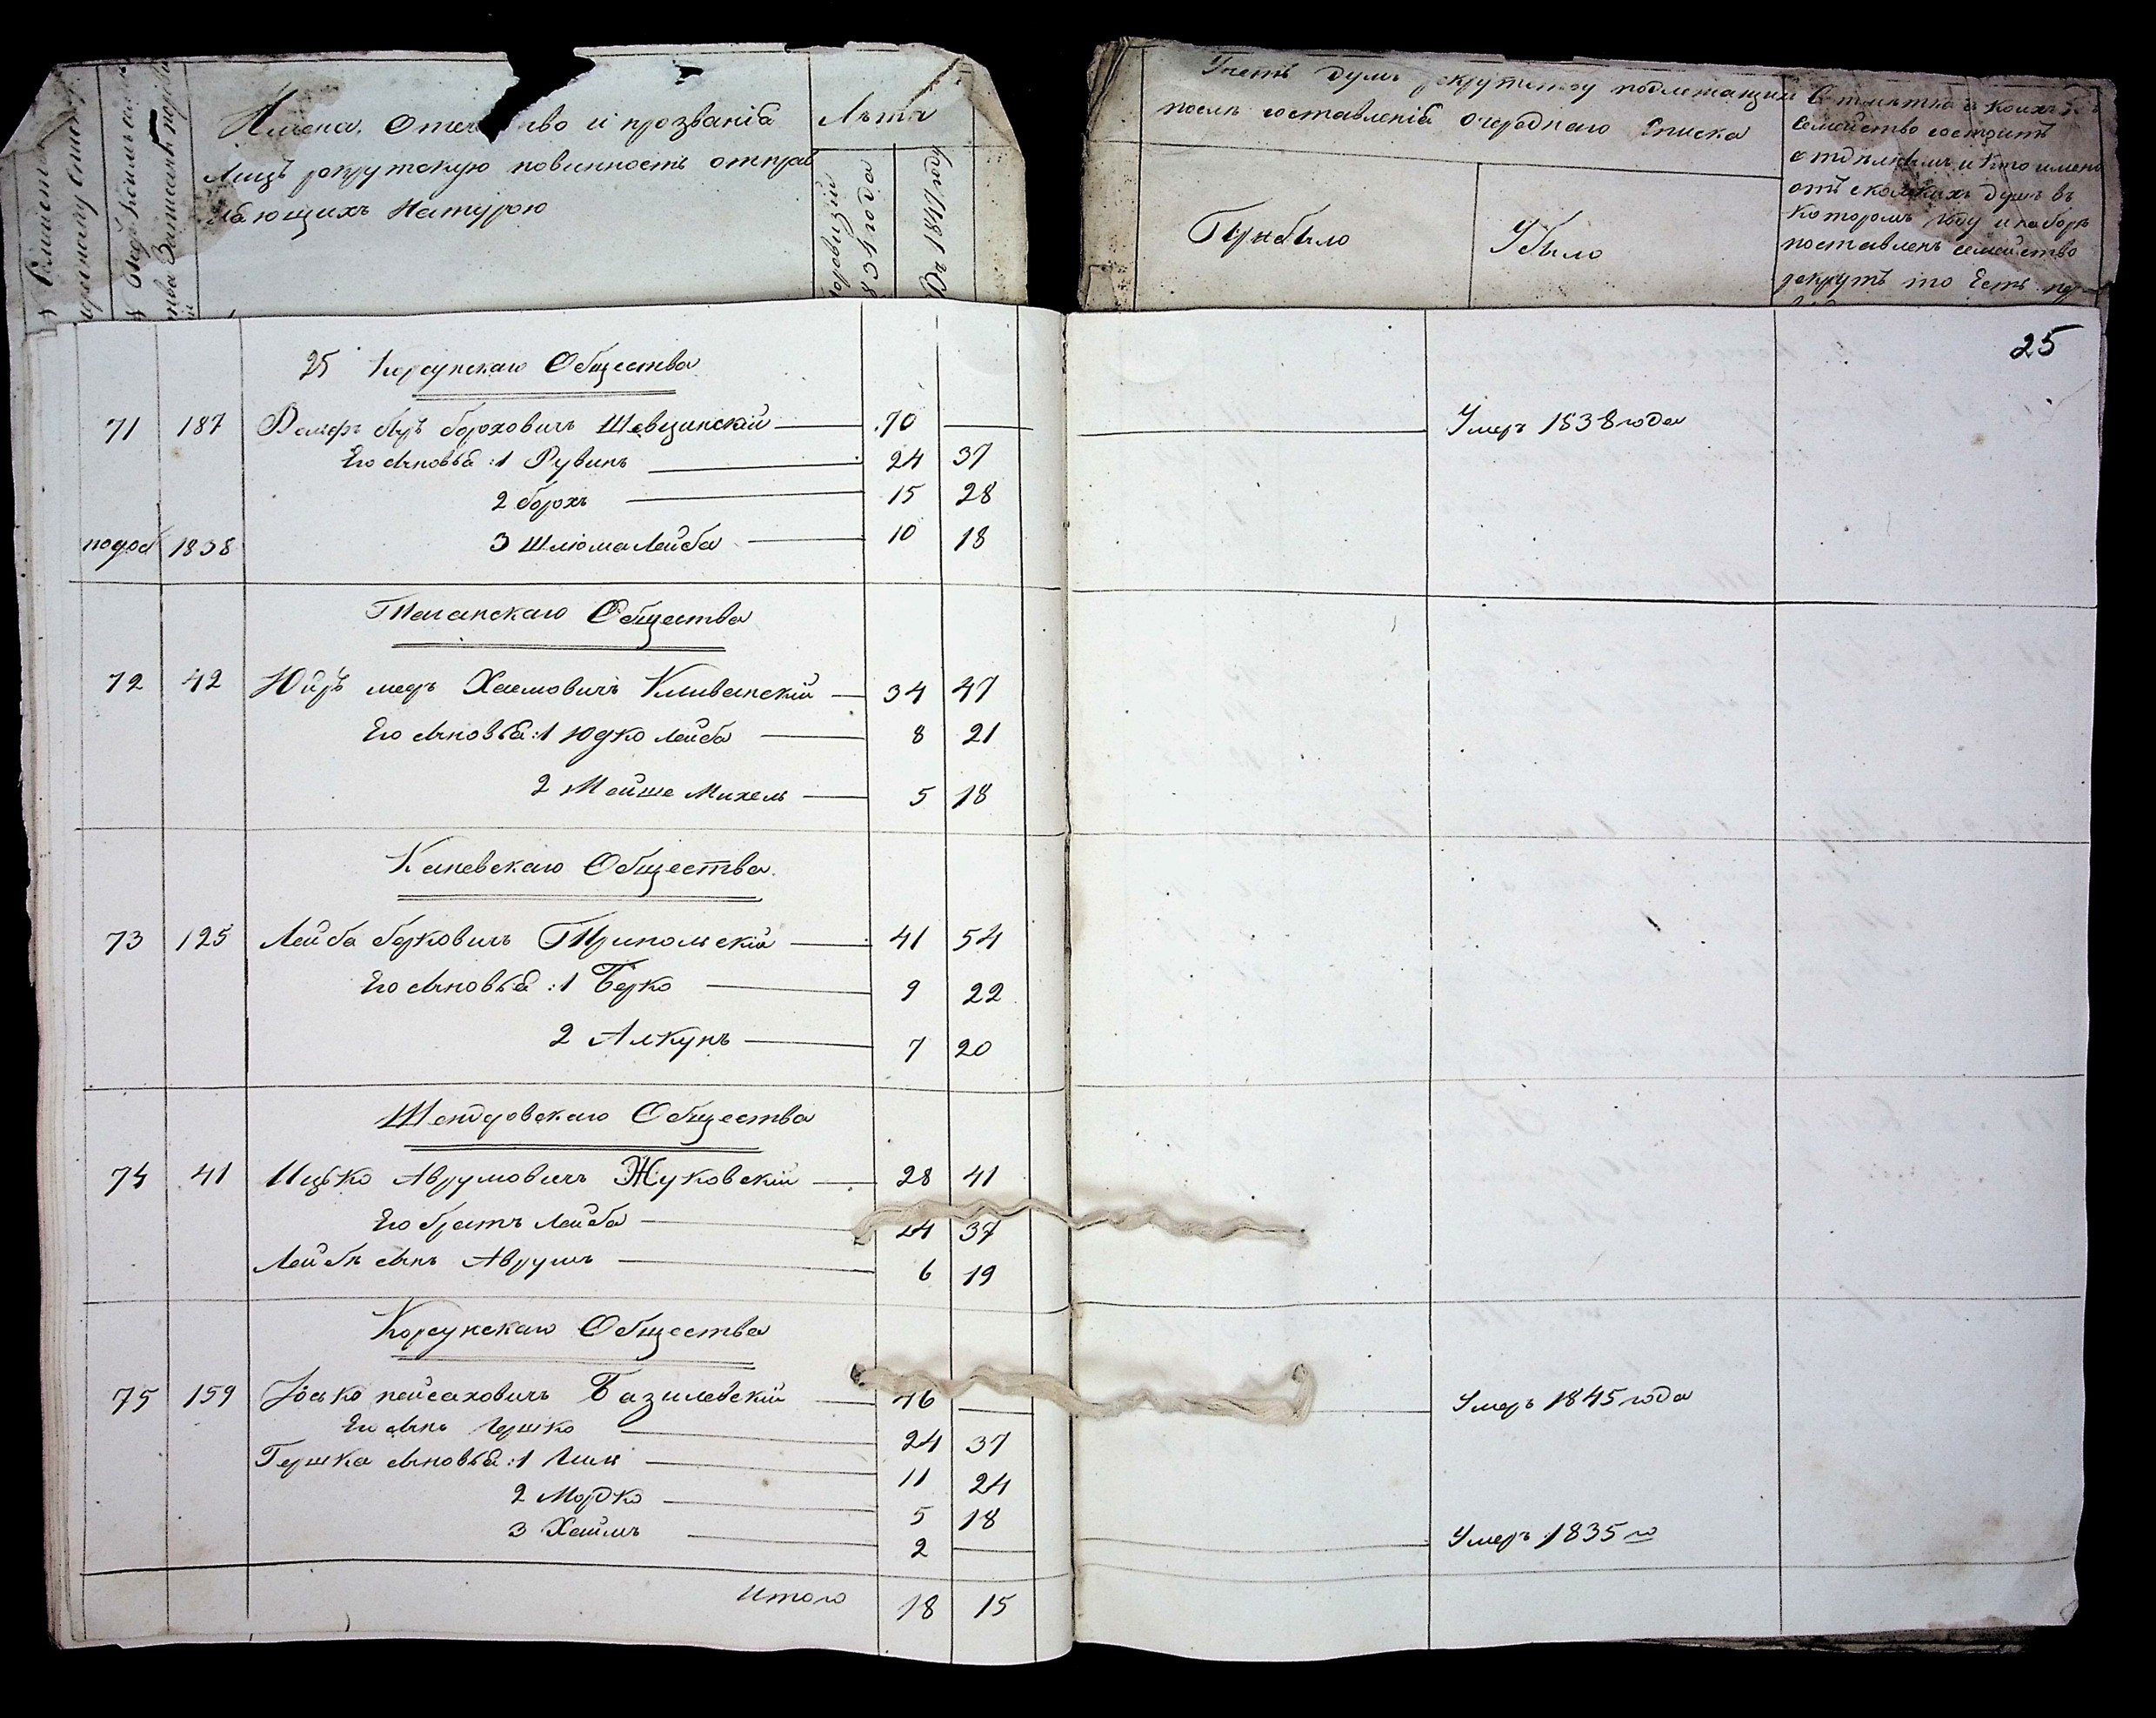 Имена, Отечество и прозванія
Лицъ рекрутскую повинность отправ
ляющихъ Натурою
Лѣта
1834 года
1847 года
Учетъ душъ рекрутской подлежащихъ
послѣ составленія очереднаго Списка
Прибыло
Убыло
Отмѣтка о коихъ
Семейство состоитъ
отдѣльнымъ и кто имено
отъ сколькихъ душъ въ
которомъ году и наборѣ
поставленъ семейство
рекрутъ то Есть
25
25 Корсунскаго Общества
71 187 Волфъ Беръ Бороховичъ Шевцинскій 70 Умеръ 1838 года
Его сыновья: 1 Рувинъ 24 37
2 борохъ 15 28
подоб 1838 3 Шлюма Лейба 10 18
Таганскаго Общества
72 42 Меръ Хаемовичъ Кливанскій 34 47
Его сыновья: 1 Юдко Лейба 8 21
2 Мойше Михель 5 18
Каневскаго Общества
73 125 Лейба берковичъ Трипольскій 41 54
Его сыновья: 1 Берко 9 22
2 Алкунъ 7 20
Шендеровскаго Общества
74 41 Ицько Аврумовичъ Жуковскій 28 41
Его братъ Лейба 24 37
Лейбы сынъ Аврумъ 6 19
Корсунскаго Общества
75 159 Іосько пейсаховичъ Базилевскій 46 Умеръ 1845 года
Его сынъ Гершко 24 37
Гершка сыновья: 1 Ицик 11 24
2 Мордко 5 18
3 Хаимъ 2 Умеръ 1835 го
Итого 18 15